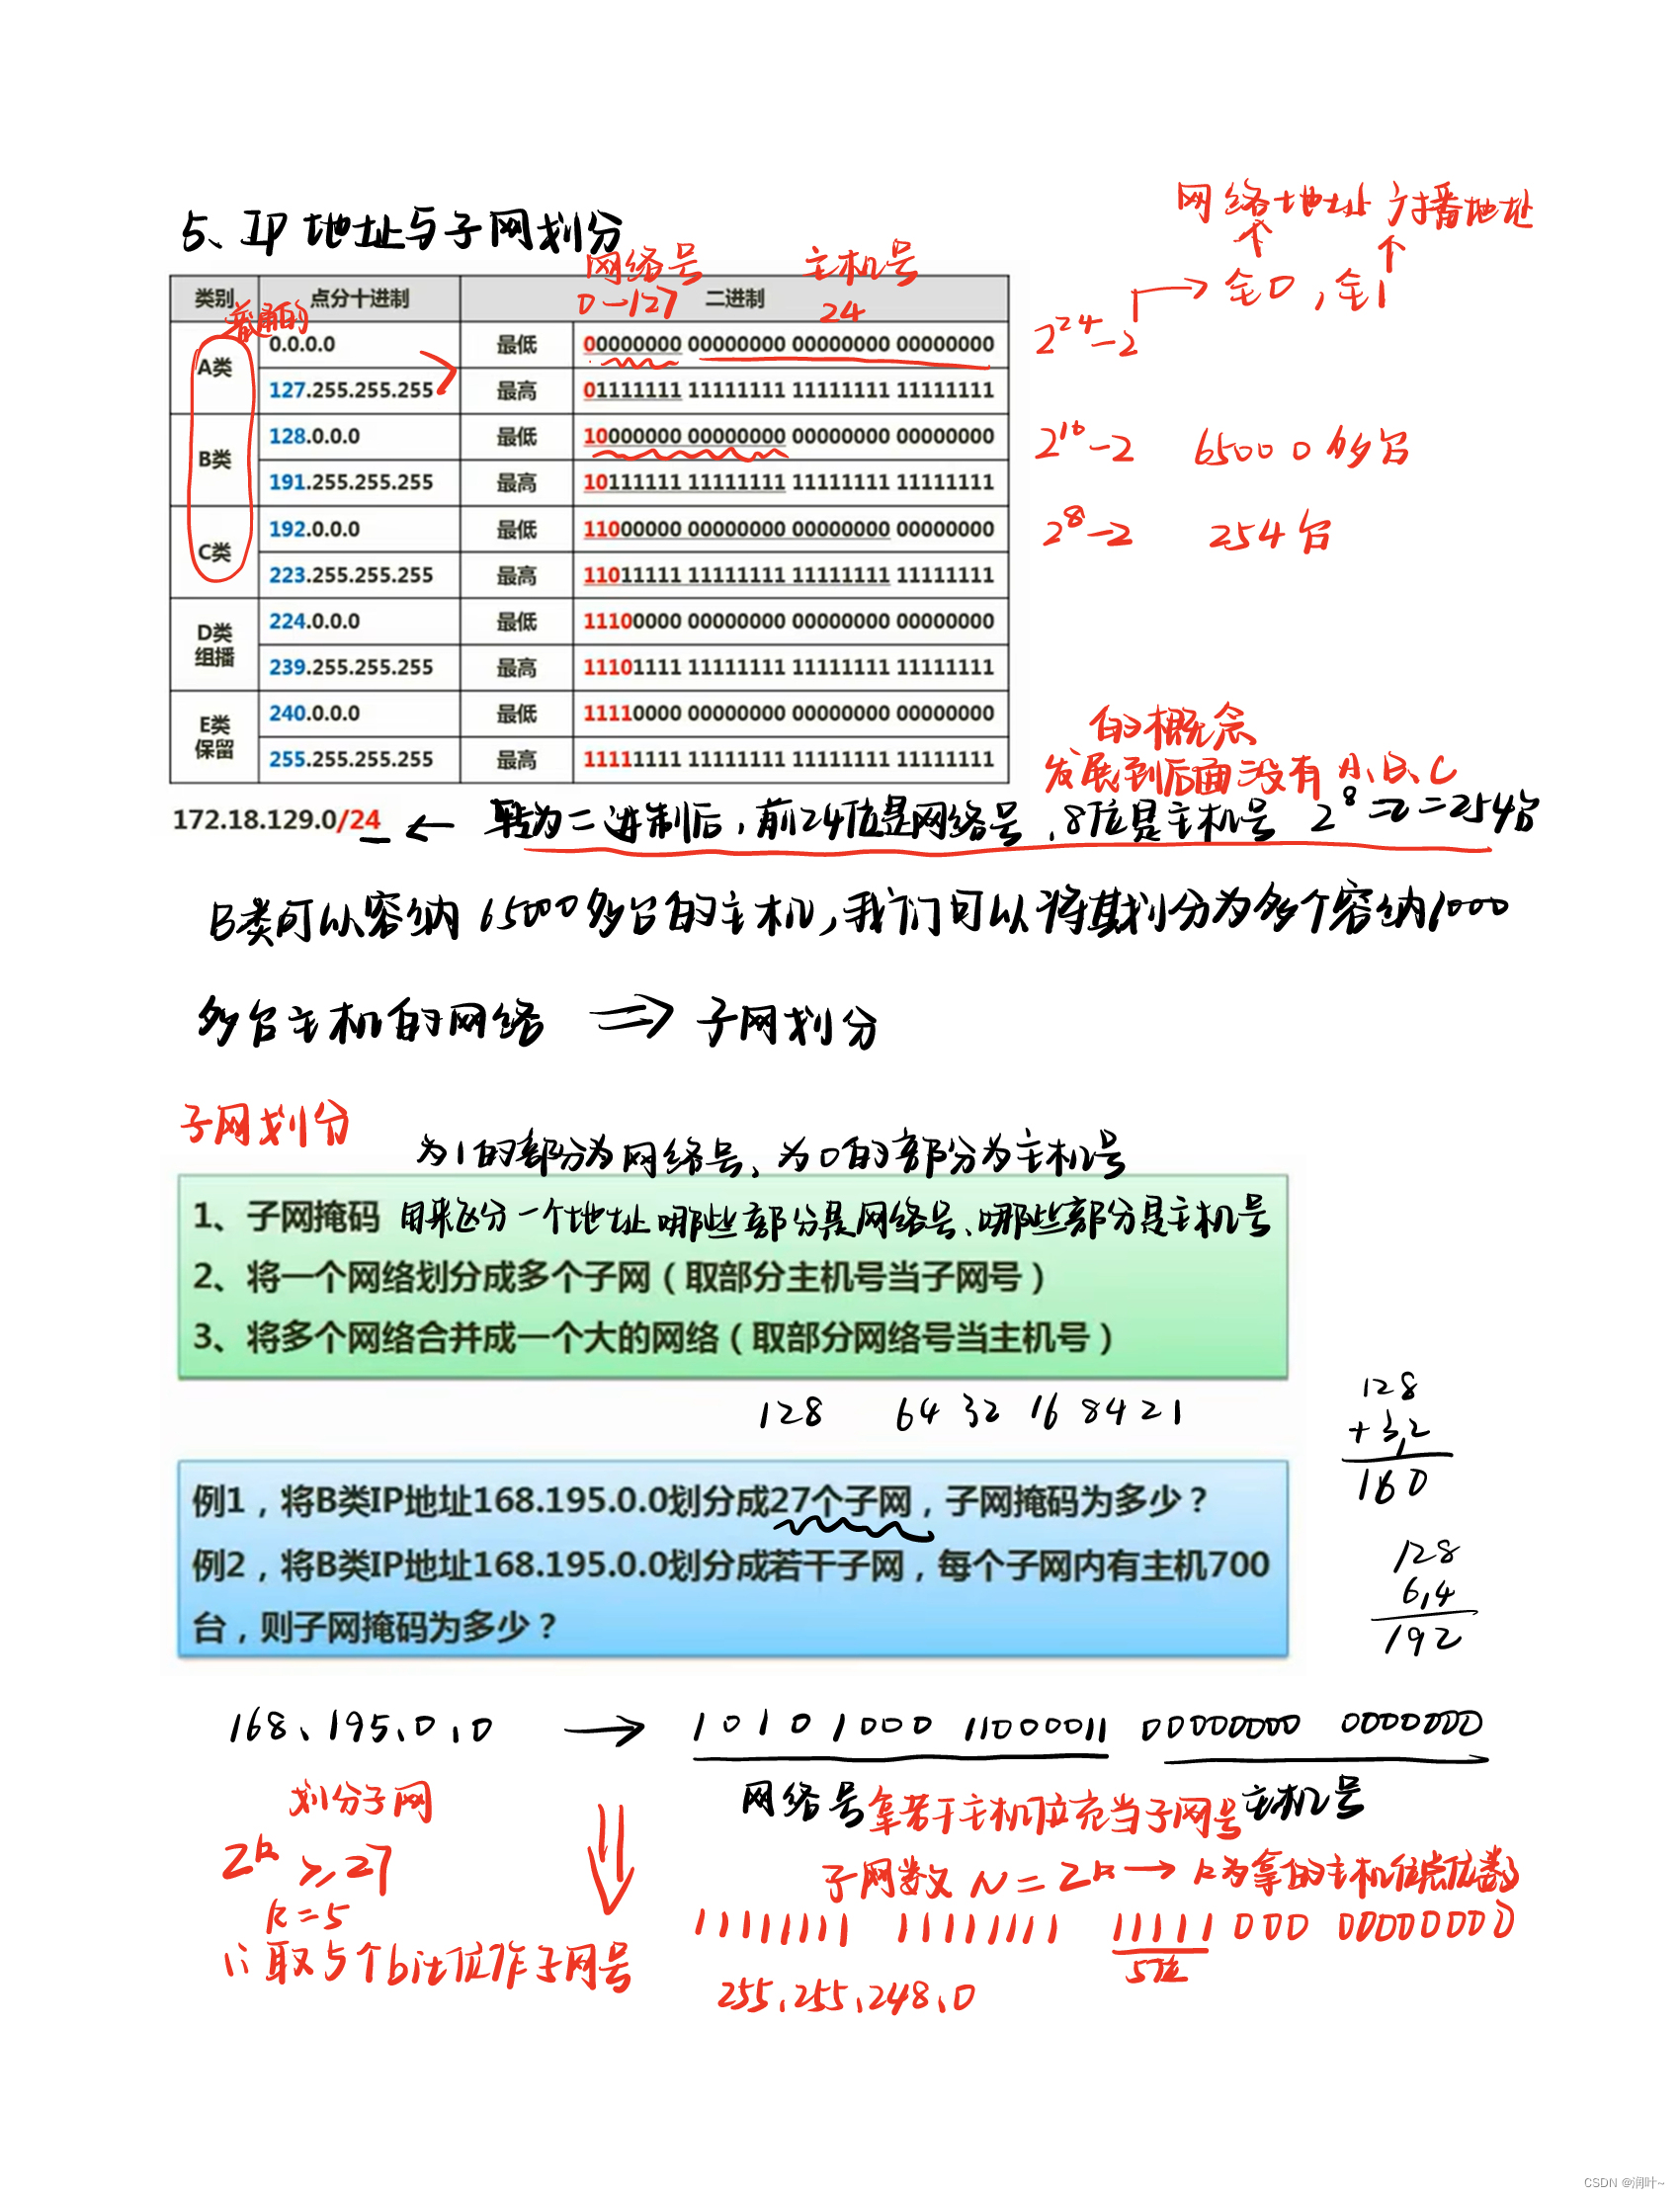 网络地址 广播地址
5、IP 地址与子网划分
网络号 主机号
全0，全1
类别 点分十进制 二进制
0—127 24
普通的
A类 0.0.0.0 最低 00000000 00000000 00000000 00000000
2^24-2
127.255.255.255 最高 01111111 11111111 11111111 11111111
B类 128.0.0.0 最低 10000000 00000000 00000000 00000000
2^16-2 65000多台
191.255.255.255 最高 10111111 11111111 11111111 11111111
C类 192.0.0.0 最低 11000000 00000000 00000000 00000000
2^8-2 254台
223.255.255.255 最高 11011111 11111111 11111111 11111111
D类 组播 224.0.0.0 最低 11100000 00000000 00000000 00000000
239.255.255.255 最高 11101111 11111111 11111111 11111111
E类 保留 240.0.0.0 最低 11110000 00000000 00000000 00000000
255.255.255.255 最高 11111111 11111111 11111111 11111111
的概念
发展到后面没有A、B、C
172.18.129.0/24 ← 转为二进制后，前24位是网络号，8位是主机号 2^8-2=254台
B类可以容纳65000多台的主机，我们可以将其划分为多个容纳1000
多台主机的网络 ⇒ 子网划分
子网划分
为1的部分为网络号、为0的部分为主机号
1、子网掩码 用来区分一个地址哪些部分是网络号、哪些部分是主机号
2、将一个网络划分成多个子网（取部分主机号当子网号）
3、将多个网络合并成一个大的网络（取部分网络号当主机号）
128 64 32 16 8 4 2 1
128
+32
160
例1，将B类IP地址168.195.0.0划分成27个子网，子网掩码为多少？
例2，将B类IP地址168.195.0.0划分成若干子网，每个子网内有主机700
台，则子网掩码为多少？
128
64
192
168、195.0.0 → 10101000 11000011 00000000 0000000
网络号 拿若干主机位充当子网号 主机号
划分子网
2^k ≥ 27
子网数 N=2^k → k为拿的主机位总位数
k=5
11111111 11111111 11111000 00000000
5位
∴取5个bit位作子网号
255.255.248.0
CSDN @润叶~